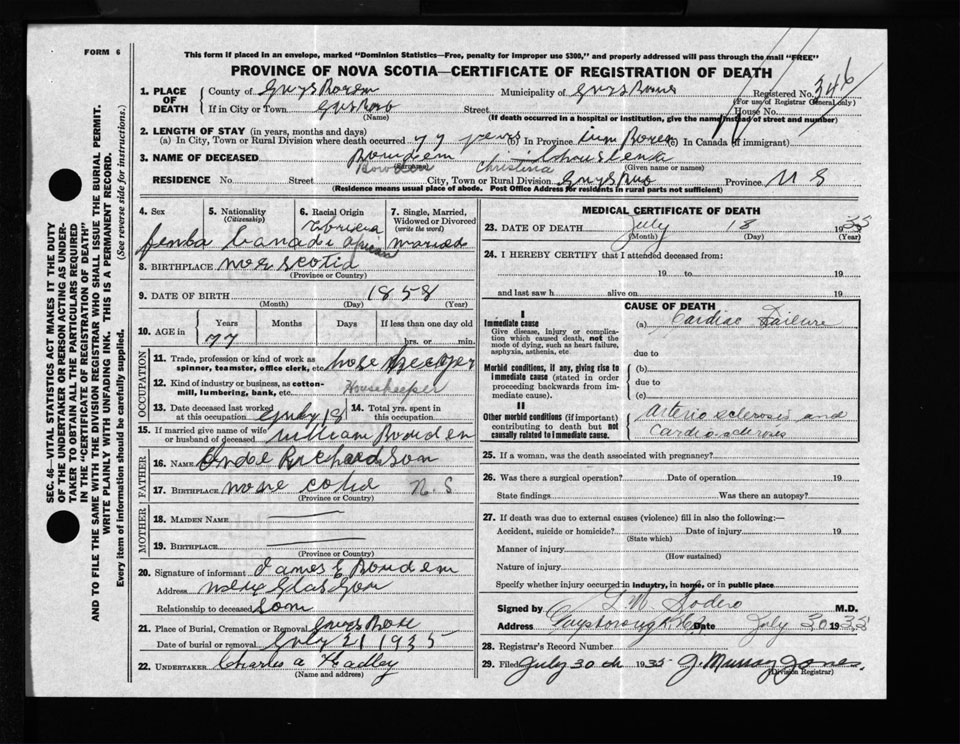 FORM 6
This form if placed in an envelope, marked "Dominion Statistics—Free, penalty for improper use $300," and properly addressed will pass through the mail "FREE"
PROVINCE OF NOVA SCOTIA—CERTIFICATE OF REGISTRATION OF DEATH
SEC. 46—VITAL STATISTICS ACT MAKES IT THE DUTY
OF THE UNDERTAKER OR PERSON ACTING AS UNDER-
TAKER TO OBTAIN ALL THE PARTICULARS REQUIRED
IN THE "CERTIFICATE OF REGISTRATION OF DEATH"
AND TO FILE THE SAME WITH THE DIVISION REGISTRAR WHO SHALL ISSUE THE BURIAL PERMIT.
WRITE PLAINLY WITH UNFADING INK. THIS IS A PERMANENT RECORD.
Every item of information should be carefully supplied. (See reverse side for instructions.)
1. PLACE OF DEATH
County of Municipality of Registered No. 346
(For use of Registrar General only)
If in City or Town Street House No.
(Name) (If death occurred in a hospital or institution, give the name instead of street and number)
2. LENGTH OF STAY (in years, months and days)
(a) In City, Town or Rural Division where death occurred 77 years (b) In Province (c) In Canada (if immigrant)
3. NAME OF DECEASED Bowdem
Bowden Christina
(Surname) (Given name or names)
RESIDENCE No. Street City, Town or Rural Division Province N S
(Residence means usual place of abode. Post Office Address for residents in rural parts not sufficient)
4. Sex 5. Nationality (Citizenship) 6. Racial Origin 7. Single, Married, Widowed or Divorced (write the word)
Married
8. BIRTHPLACE
(Province or Country)
9. DATE OF BIRTH 1858
(Month) (Day) (Year)
10. AGE in Years Months Days If less than one day old
77 hrs. or min.
OCCUPATION
11. Trade, profession or kind of work as spinner, teamster, office clerk, etc.
12. Kind of industry or business, as cotton-mill, lumbering, bank, etc. Housekeeper
13. Date deceased last worked at this occupation July 18 14. Total yrs. spent in this occupation
15. If married give name of wife or husband of deceased William Bouden
FATHER
16. NAME Richardson
17. BIRTHPLACE N. S
MOTHER
18. MAIDEN NAME
19. BIRTHPLACE
(Province or Country)
20. Signature of informant James E Bouden
Address New Glasgow
Relationship to deceased Som
21. Place of Burial, Cremation or Removal
Date of burial or removal July 21 1935
22. UNDERTAKER Charles A Hadley
(Name and address)
MEDICAL CERTIFICATE OF DEATH
23. DATE OF DEATH July 18 1935
(Month) (Day) (Year)
24. I HEREBY CERTIFY that I attended deceased from:
19 to 19
and last saw h alive on 19
CAUSE OF DEATH
I
Immediate cause
Give disease, injury or complication which caused death, not the mode of dying, such as heart failure, asphyxia, asthenia, etc.
(a) Cardiac Failure
due to
Morbid conditions, if any, giving rise to immediate cause (stated in order proceeding backwards from immediate cause).
(b)
due to
(c)
II
Other morbid conditions (if important) contributing to death but not causally related to immediate cause.
Arterio sclerosis and
Cardio-sclerosis
25. If a woman, was the death associated with pregnancy?
26. Was there a surgical operation? Date of operation 19
State findings Was there an autopsy?
27. If death was due to external causes (violence) fill in also the following:—
Accident, suicide or homicide? Date of injury 19
(State which)
Manner of injury
(How sustained)
Nature of injury
Specify whether injury occurred in industry, in home, or in public place
Signed by M.D.
Address Date July 30 1935
28. Registrar's Record Number
29. Filed July 30th 1935 J. Murray Jones
(Division Registrar)